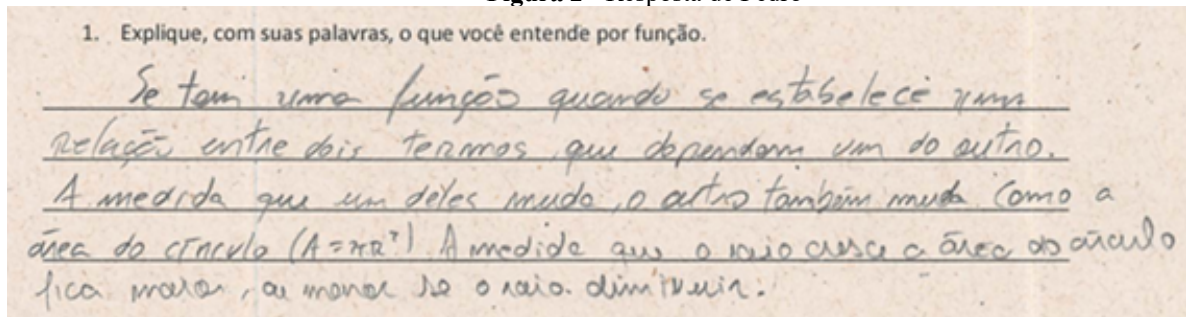 1. Explique, com suas palavras, o que você entende por função.
Se tem uma função quando se estabelece uma
relação entre dois termos, que dependam um do outro.
A medida que um deles muda, o outro também muda. Como a
área do círculo (A = πR²). A medida que o raio cresce a área do círculo
fica maior, ou menor se o raio diminuir.